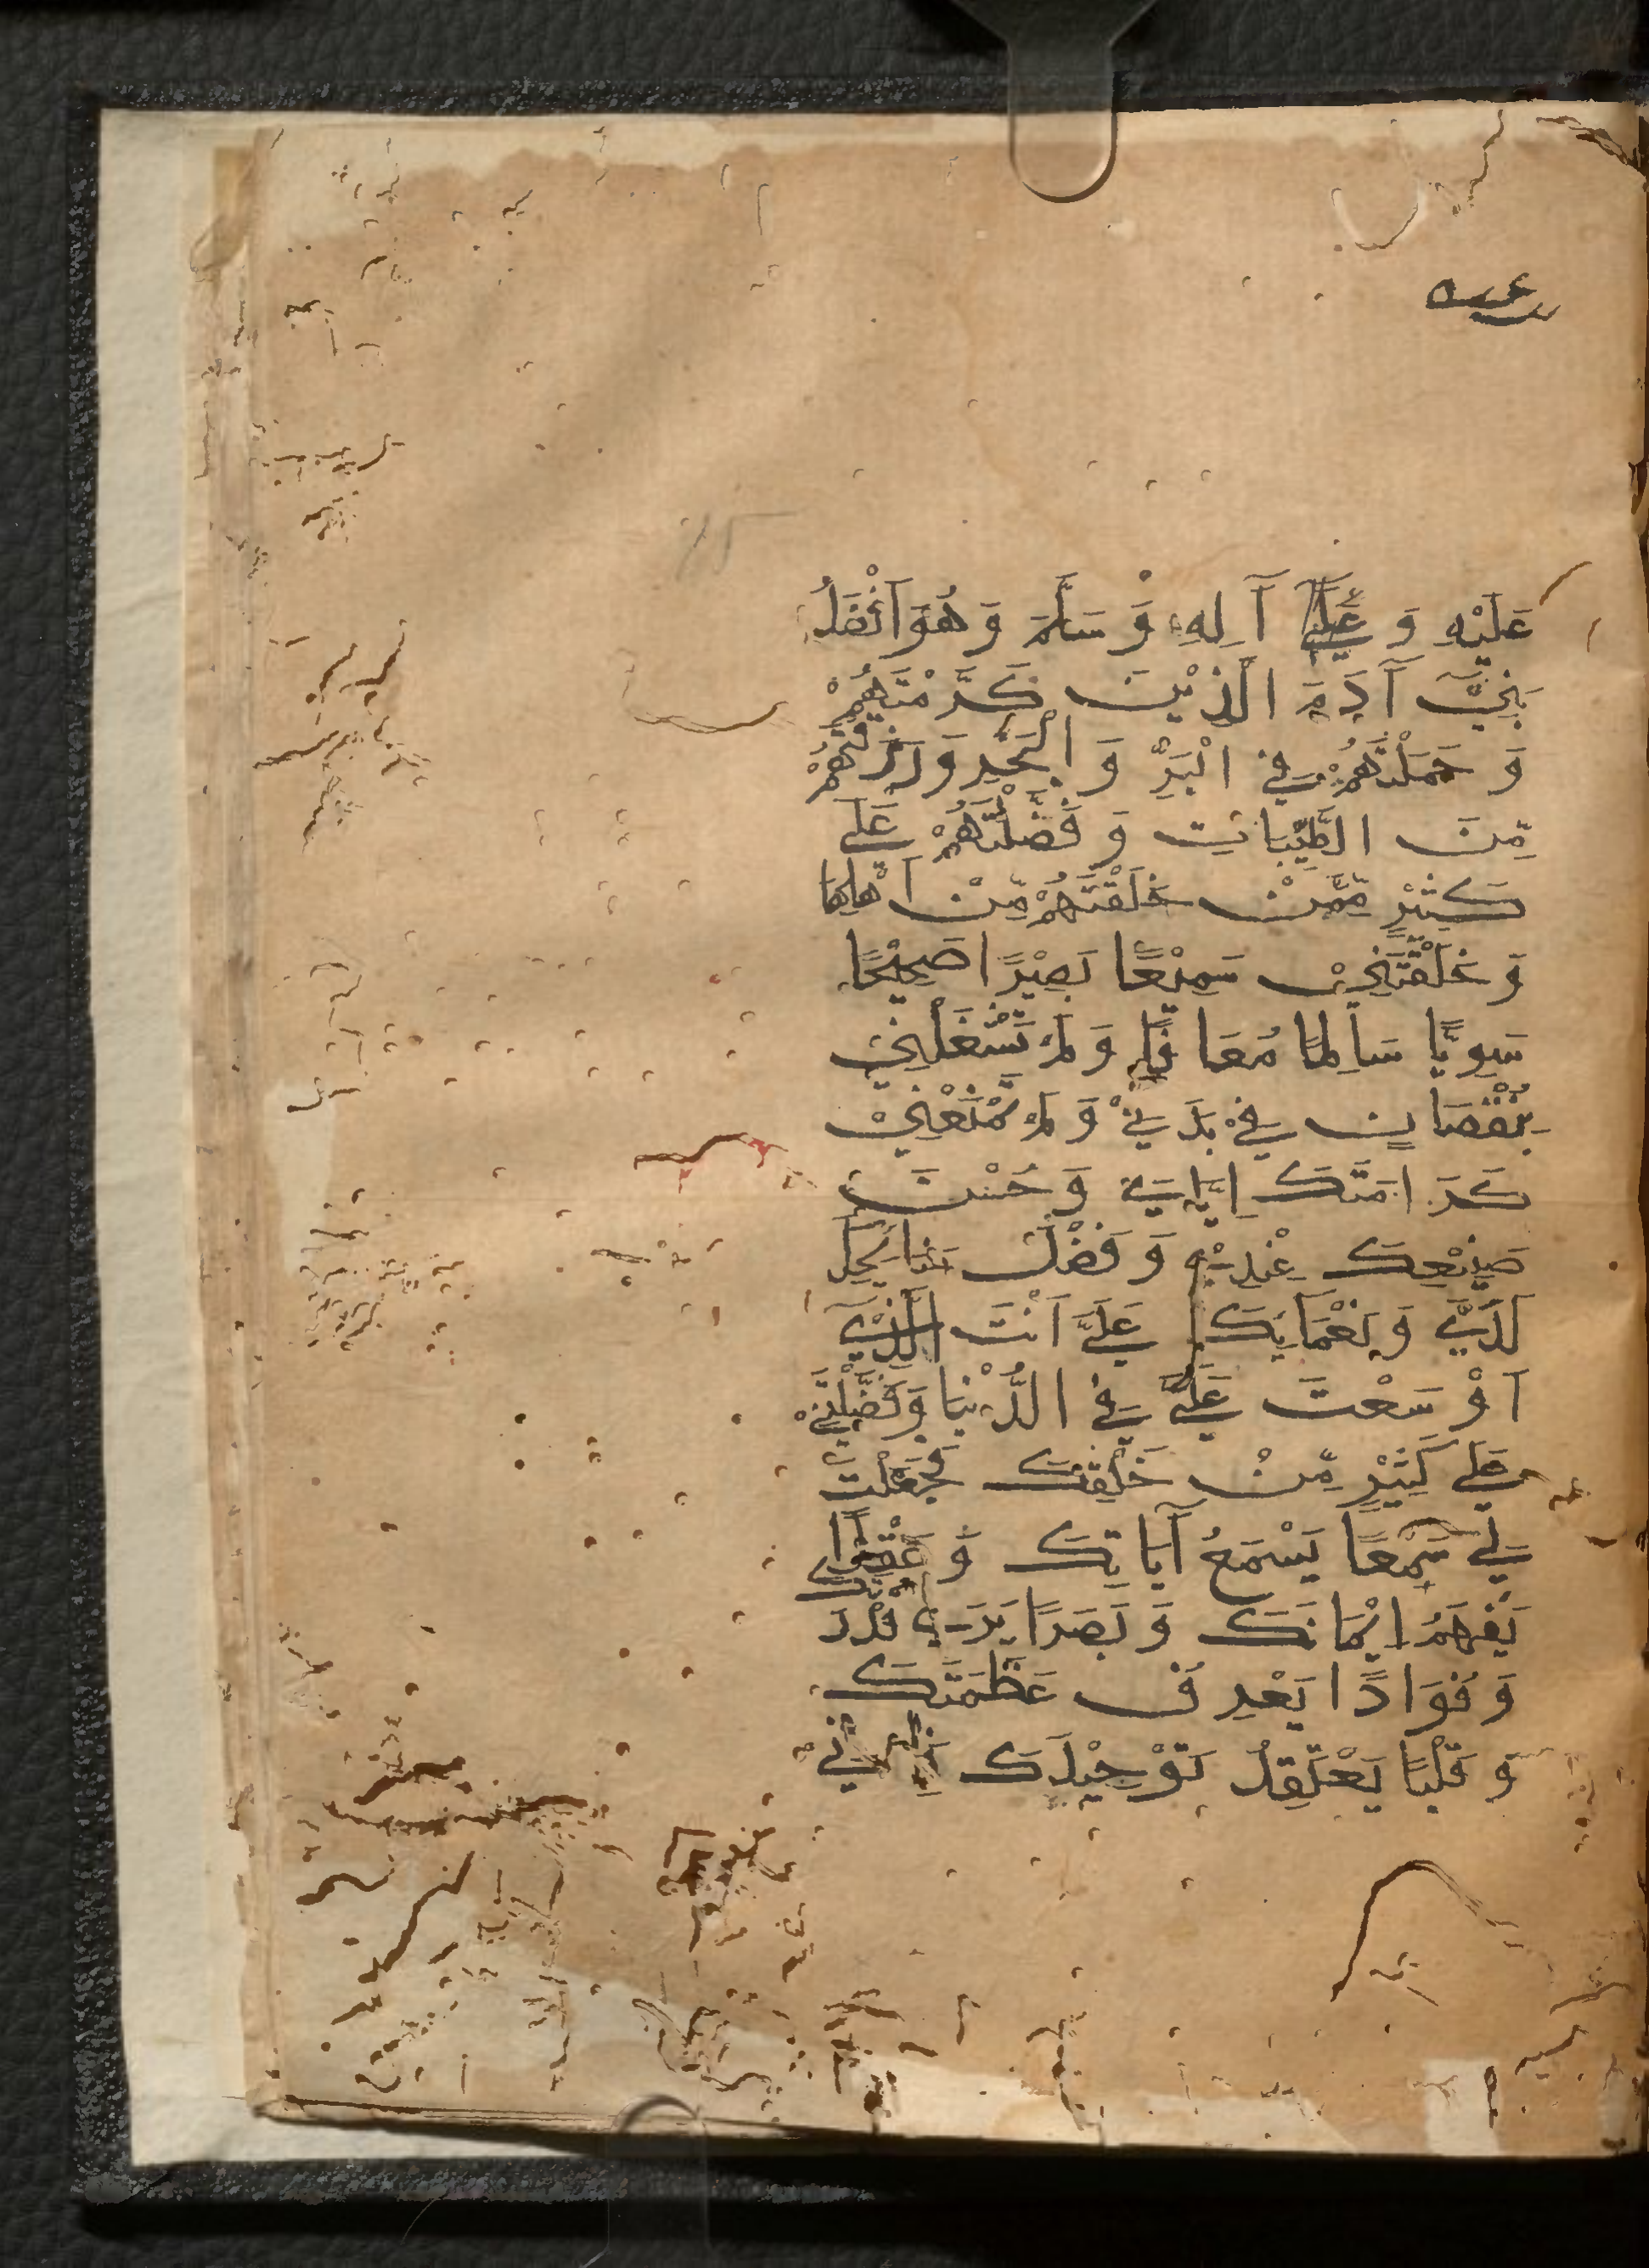 عَلَيْهِ وَ عَلَىٰ آلِهِ وَ سَلَّمَ وَ هُوَ اَفْضَلُ
بَنِيْ آدَمَ الَّذِيْنَ كَرَّمْتَهُمْ
وَ حَمَلْتَهُمْ فِي الْبَرِّ وَ الْبَحْرِ وَ رَزَقْتَهُمْ
مِّنَ الطَّيِّبَاتِ وَ فَضَّلْتَهُمْ عَلَى
كَثِيْرٍ مِّمَّنْ خَلَقْتَهُمْ مِّنْ اَهْلِهَا
وَ خَلَقْتَنِيْ سَمِيْعًا بَصِيْرًا صَحِيْحًا
سَوِيًّا سَالِمًا مُعَافًا وَ لَمْ تَشْغَلْنِيْ
بِنُقْصَانٍ فِيْ بَدَنِيْ وَ لَمْ تَمْنَعْنِيْ
كَرَامَتَكَ اِيَّايَ وَ حُسْنَ
صَنِيْعِكَ عِنْدِيْ وَ فَضْلَ مَنَائِحِكَ
لَدَيَّ وَ نَعْمَائِكَ عَلَيَّ اَنْتَ الَّذِيْ
اَوْسَعْتَ عَلَيَّ فِي الدُّنْيَا وَ فَضَّلْتَنِيْ
عَلَى كَثِيْرٍ مِّنْ خَلْقِكَ فَجَعَلْتَ
لِيْ سَمْعًا يَسْمَعُ آيَاتِكَ وَ عَقْلًا
يَفْهَمُ اِيْمَانَكَ وَ بَصَرًا يَرَى قُدْرَتَكَ
وَ فُوَادًا يَعْرِفُ عَظَمَتَكَ
وَ قَلْبًا يَعْتَقِدُ تَوْحِيْدَكَ فَاِنِّيْ